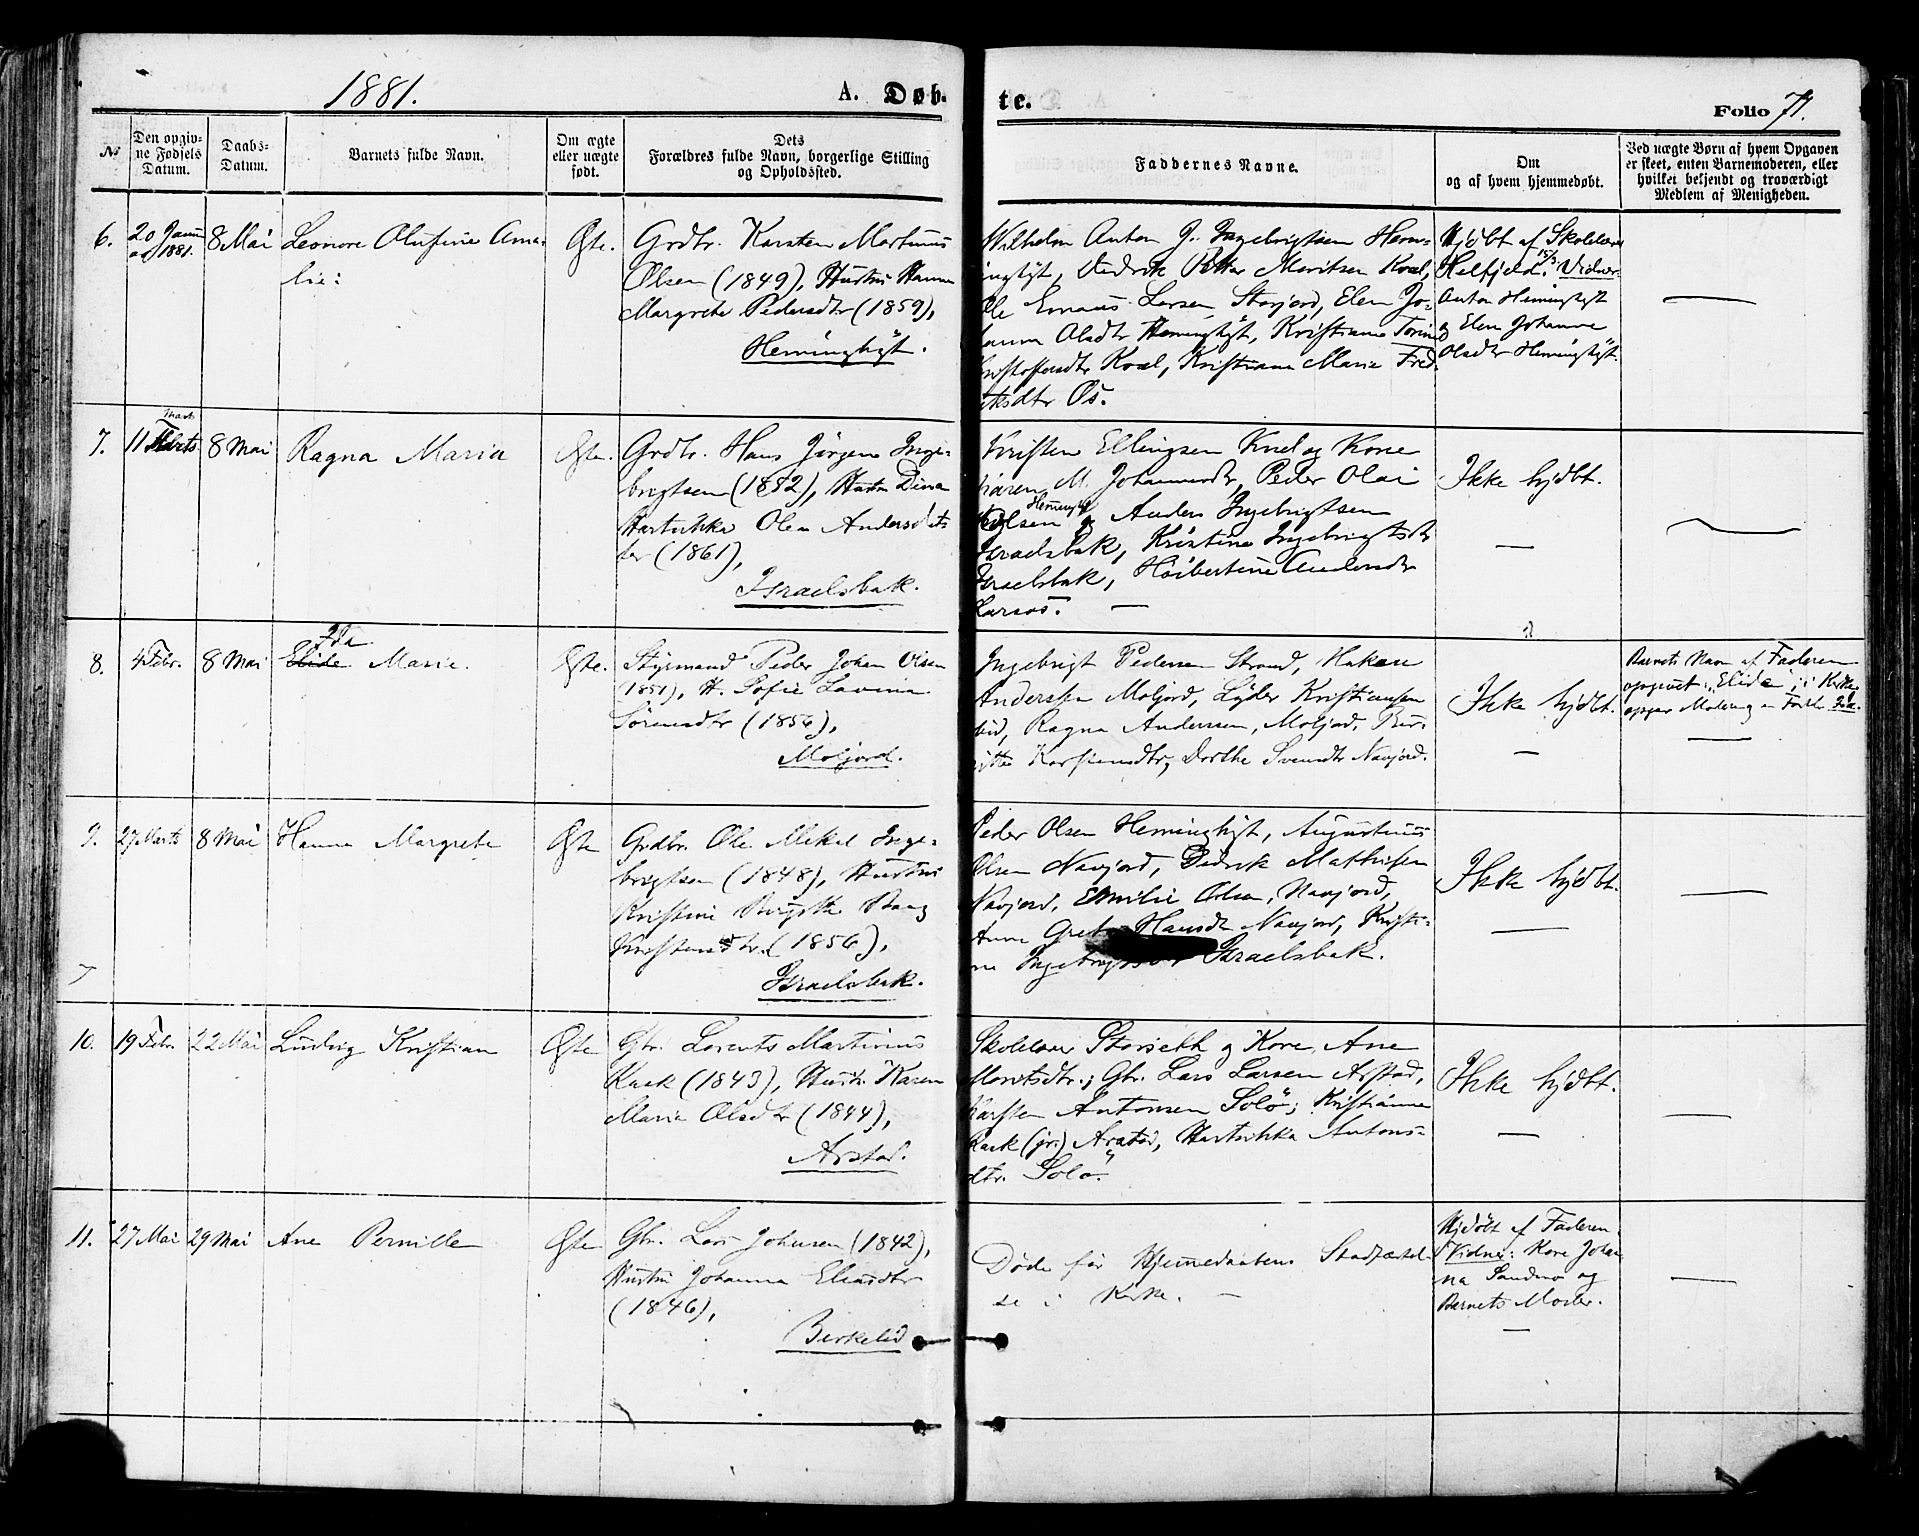 1881.
A. Døb-
te.
Folio 71.
№
Den opgiv-
ne Fødsels
Datum.
Daabs-
Datum.
Barnets fulde Navn.
Om ægte
eller uægte
født.
Dets
Forældres fulde Navn, borgerlige Stilling
og Opholdssted.
Faddernes Navne.
Om
og af hvem hjemmedøbt.
Ved uægte Børn af hvem Opgaven
er skeet, enten Barnemoderen, eller
hvilket bekjendt og troværdigt
Medlem af Menigheden.
6.
20 Janu
ar 1881.
8 Mai
Leonore Olufine Ama-
lie:
Ægte.
Grdbr. Karsten Martinus
Olsen (1849), Hustru Hanna
Margrete Pedersdtr (1859),
Hemingtyt.
Wilhelm Anton J. Ingebrigtsen Hem-
ingtyt, Didrik Petter Moritsen Kval,
Ole Larsen Storjord, Elen Jo-
hanna Olsdtr Hemingtyt, Kristiane
Kval, Kristiane Marie Fred-
riksdtr Os.
Hjdbt af Skolelærer
15/3. Vidner
Anton Hemingtyt
og Elen Johanne
Olsdtr Hemingtyt.
7.
11
Marts
8 Mai
Ragna Maria
Ægte.
Grdbr. Hans Jörgen Inge-
brigtsen (1852), Hustru Dina
Hartvikka Olea Andersdat-
ter (1861),
Israelsbak.
Kristen Ellingsen og Kone
Karen M. Johannesdtr, Peder Olai
Hemingtyt
Olsen og Anders Ingebrigtsen
Israelsbak, Kristine Ingebrigtsdtr
Israelsbak, Hölbertine Andersdtr
Ikke hjdbt.
8.
4 Febr.
8 Mai
Ida
Elide Marie.
Ægte.
Styrmand Peder Johan Olsen
(1851), H. Sofie Lovina
Sörensdtr (1856),
Moljord.
Ingebrigt Pedersen Strand, Hakon
Anderssen Moljord, Lyder Kristiansen
ibid, Ragna Anderssen, Moljord, Ber-
gitte Dorthe Svendsdtr Navjord.
Ikke hjdbt.
Barnets Navn af Faderen
opgivet: "Elide"; i Kirke
opgav Moderen
9.
27 Marts
8 Mai
Hanna Margrete
Ægte
Grdbr. Ole Mikal Inge-
brigtsen (1848), Hustru
Kristine Birgitte Bang
Kristensdtr. (1856),
Israelsbak.
Peder Olsen Hemingtyt, Augustinus
Olsen Navjord, Didrik Mathisen
Navjord, Emilie Olsen, Navjord,
Anne Grete Hansdtr Navjord, Kristi-
ne Israelsbak.
Ikke hjdbt.
10.
19 Febr.
22 Mai
Ludvig Kristian
Ægte
Gbr. Lorents Martinus
Rask (1843), Hustr. Karen
Maria Olsdtr (1844),
Arstad.
Skolelærer Storseth og Kone Ane
Moritsdtr.; Gbr. Lars Larsen Arstad,
Karsten Antonsen Solö; Kristianne
Rask (jr.) Arstad, Hartvikka Antons-
dtr. Solö.
Ikke hjdbt.
11.
27 Mai
29 Mai
Ane Pernille
Ægte
Gbr. Lars Johnsen (1842),
Hustru Johanna Eliasdtr
(1846),
Birkelid
Döde för Hjemmedaabens Stadfæstel-
se i Kirke. —
Hjdöbt af Faderen
Vidner: Kone Johan-
na Sandmo og
Barnets Moder.